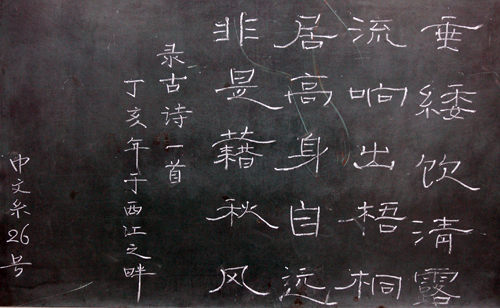 垂緌饮清露
流响出梧桐
居高身自远
非是藉秋风
录古诗一首
丁亥年于西江之畔
中文系26号